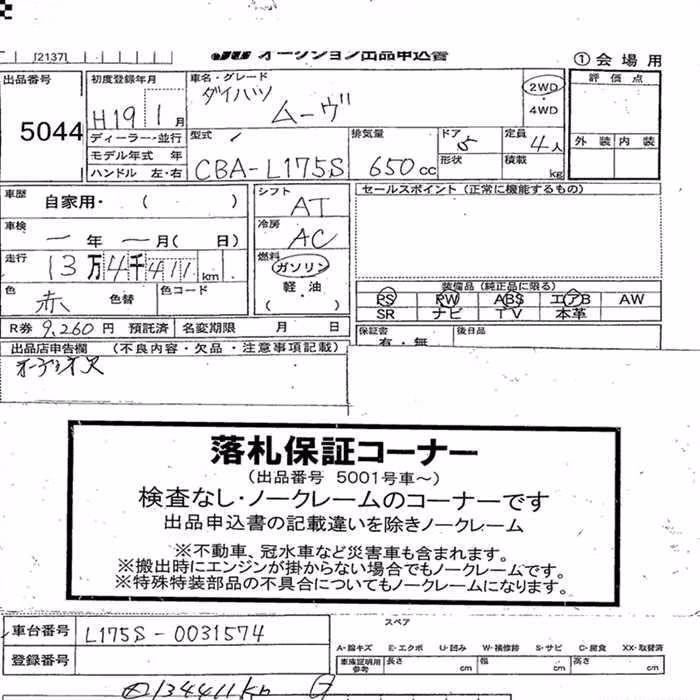 [2137]
JU オークション出品申込書
①会場用
出品番号
5044
初度登録年月
H19 1月
ディーラー・並行
モデル年式 年
ハンドル 左・右
車名・グレード
ダイハツ
ムーヴ
2WD
・
4WD
型式
CBA-L175S
排気量
650cc
ドア
5
形状
定員
4人
積載
kg
評価点
外装 内装
車歴
自家用・( )
車検
ー年ー月( 日)
走行
13万4千411km
色
赤
色替
色コード
R券 9,260円 預託済
名変期限 月 日
シフト
AT
冷房
AC
燃料
ガソリン
軽・油
( )
セールスポイント(正常に機能するもの)
装備品(純正品に限る)
PS PW ABS エアB AW
SR ナビ TV 本革
保証書
有・無
後日品
出品店申告欄 (不良内容・欠品・注意事項記載)
オーデオ欠
落札保証コーナー
(出品番号 5001号車~)
検査なし・ノークレームのコーナーです
出品申込書の記載違いを除きノークレーム
※不動車、冠水車など災害車も含まれます。
※搬出時にエンジンが掛からない場合でもノークレームです。
※特殊特装部品の不具合についてもノークレームになります。
車台番号 L175S-0031574
登録番号
スペア
A・線キズ E・エクボ U・凹み W・補修跡 S・サビ C・腐食 XX・取替済
車庫証明用
参考
長さ cm 幅 cm 高さ cm
134411km